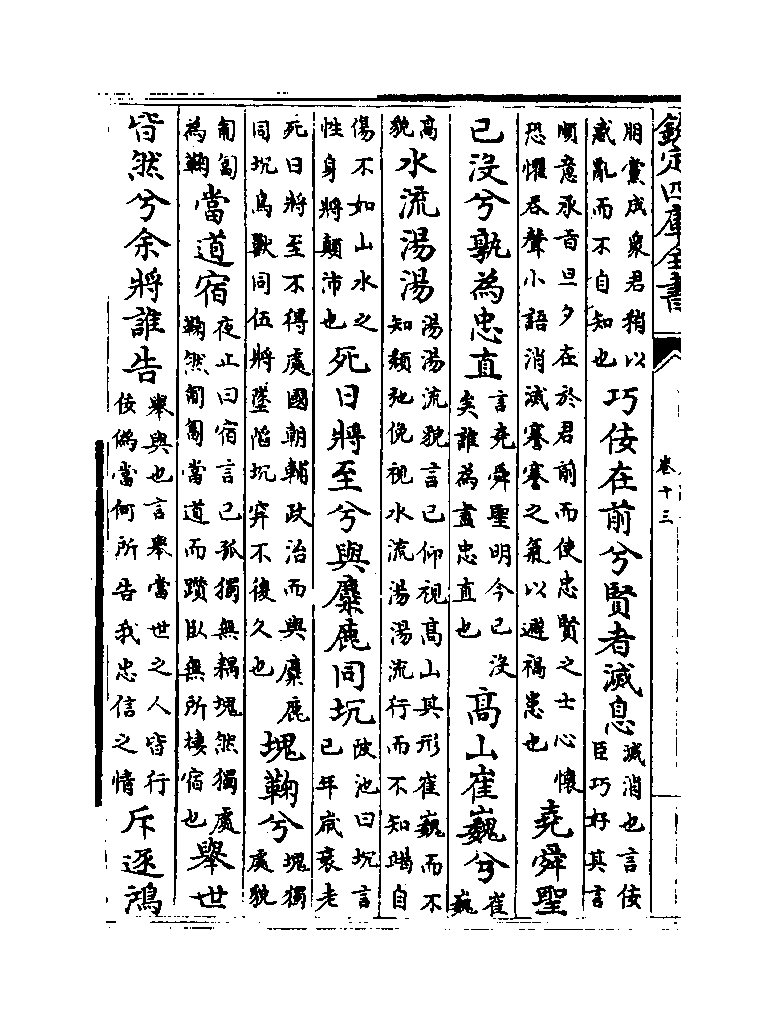 欽定四庫全書
卷十三
朋黨成衆君稍以惑亂而不自知也巧佞在前兮賢者滅息滅消也言佞臣巧好其言
順意承旨旦夕在於君前而使忠賢之士心懷恐懼吞聲小語消滅謇謇之氣以避禍患也堯舜聖
已没兮孰為忠直言堯舜聖明今已没矣誰為盡忠直也高山崔巍兮崔巍
高貌水流湯湯湯湯流貌言已仰視高山其形崔巍而不知頽弛俛視水流湯湯流行而不知竭自
傷不如山水之性身將顛沛也死日將至兮與麋鹿同坑陂池曰坑言已年歲衰老
死日將至不得處國朝輔政治而與麋鹿同坑鳥獸同伍將墜陷坑穽不復久也塊鞠兮塊獨處貌
匍匐為鞠當道宿夜止曰宿言已孤獨無耦塊然獨處鞠然匍匐當道而躓臥無所棲宿也舉世
皆然兮余將誰告舉與也言舉當世之人皆行佞偽當何所告我忠信之情斥逐鴻